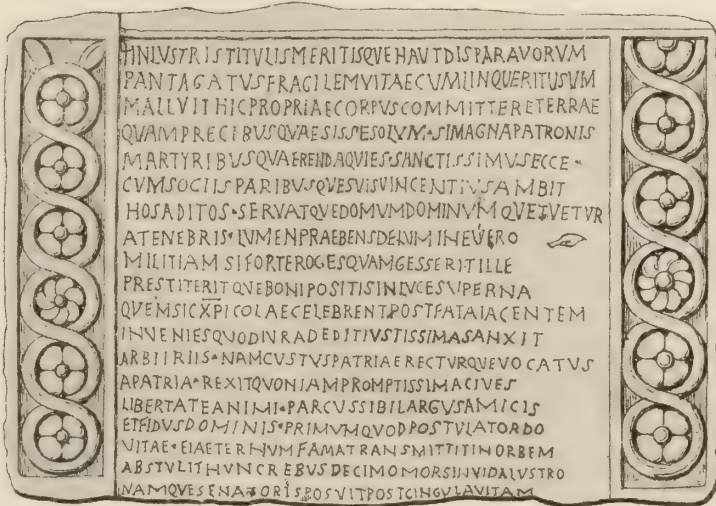 HINLVSTRISTITVLISMERITISQVEHAVTDISPARAVORVM
PANTAGATVSFRAGILEMVITAECVMLINQVERITVSVM
MALLVITHICPROPRIAECORPVSCOMMITTERETERRAE
QVAMPRECIBVSQVAESISSESOLVM•SIMAGNAPATRONIS
MARTYRIBVSQVAERENDAQVIES•SANCTISSIMVSECCE•
CVMSOCIISPARIBVSQVESVISVINCENTIVSAMBIT
HOSADITOS•SERVATQVEDOMVMDOMINVMQVETVETVR
ATENEBRIS•LVMENPRAEBENSDELVMINEVERO
MILITIAMSIFORTEROGESQVAMGESSERITILLE
PRESTITERITQVEBONIPOSITISINLVCESVPERNA
QVEMSICXPICOLAECELEBRENTPOSTFATAIACENTEM
INVENIESQVODIVRADEDITIVSTISSIMASANXIT
ARBIIRIIS•NAMCVSTVSPATRIAERECTVRQVEVOCATVS
APATRIA•REXITQVONIAMPROMPTISSIMACIVES
LIBERTATEANIMI•PARCVSSIBILARGVSAMICIS
ETFIDVSDOMINIS•PRIMVMQVODPOSTVLATORDO
VITAE•EIAETERNVMFAMATRANSMITTITINORBEM
ABSTVLITHVNCREBVSDECIMOMORSINVIDALVSTRO
NAMQVESENATORISPOSVITPOSTCINGVLAVITAM